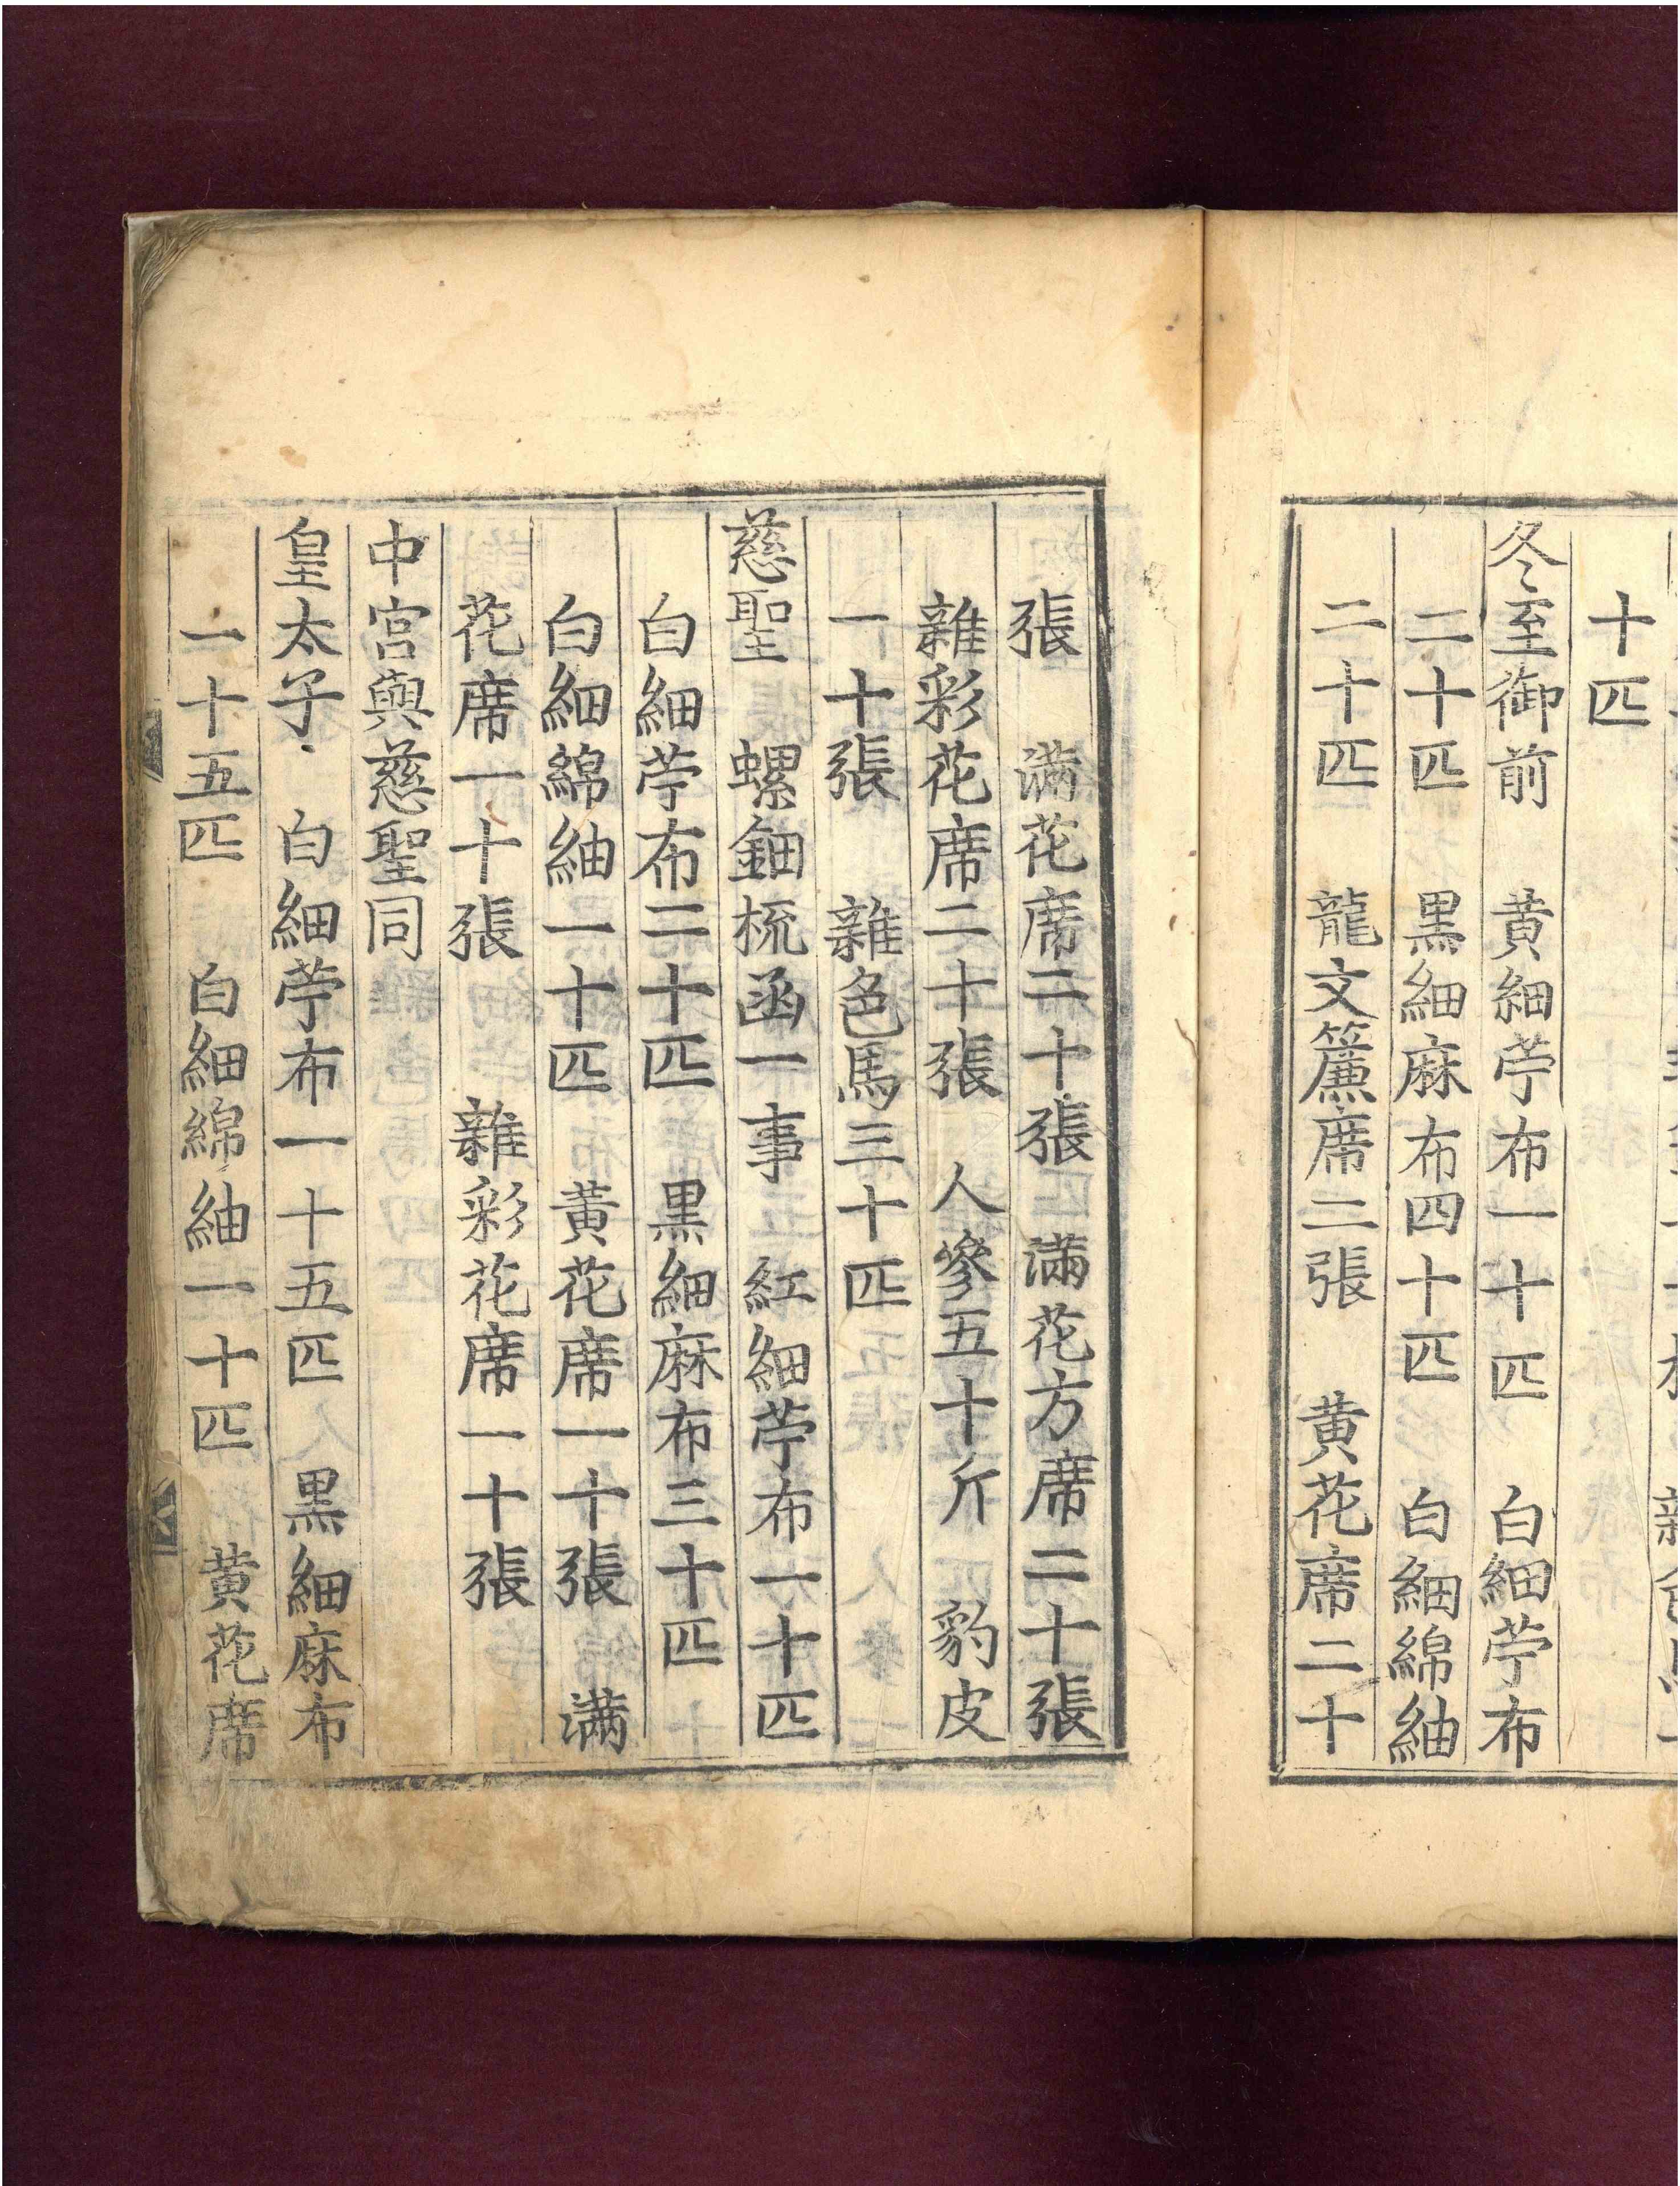 十匹
冬至御前　黄細苧布一十匹　白細苧布
二十匹　黒細麻布四十匹　白細綿紬
二十匹　龍文簾席二張　黄花席二十
張　滿花席二十張　滿花方席二十張
雜彩花席二十張　人參五十斤　豹皮
一十張　雜色馬三十匹
慈聖　螺鈿梳函一事　紅細苧布一十匹
白細苧布二十匹　黒細麻布三十匹
白細綿紬一十匹　黄花席一十張　滿
花席一十張　雜彩花席一十張
中宮與慈聖同
皇太子　白細苧布一十五匹　黒細麻布
一十五匹　白細綿紬一十匹　黄花席